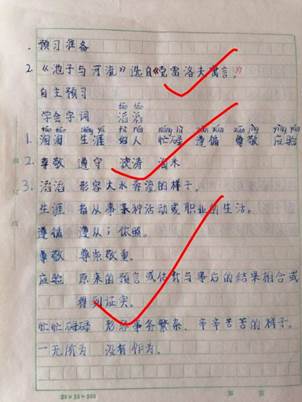 预习准备
2. 《池子与河流》选自《克雷洛夫寓言》
自主预习
学会字词 滔滔
1. 滔滔 生涯 好人 忙碌 遵循 尊敬 应验
2. 尊敬 遵守 波涛 稻米
3. 滔滔 形容大水奔流的样子。
生涯 指从事某种活动或职业的生活。
遵循 遵从；依照。
尊敬 尊崇敬重。
应验 原来的预言或估计与事后的结果相合或
得到证实。
忙忙碌碌 形容事务繁杂、辛辛苦苦的样子。
一无所为 没有作为。